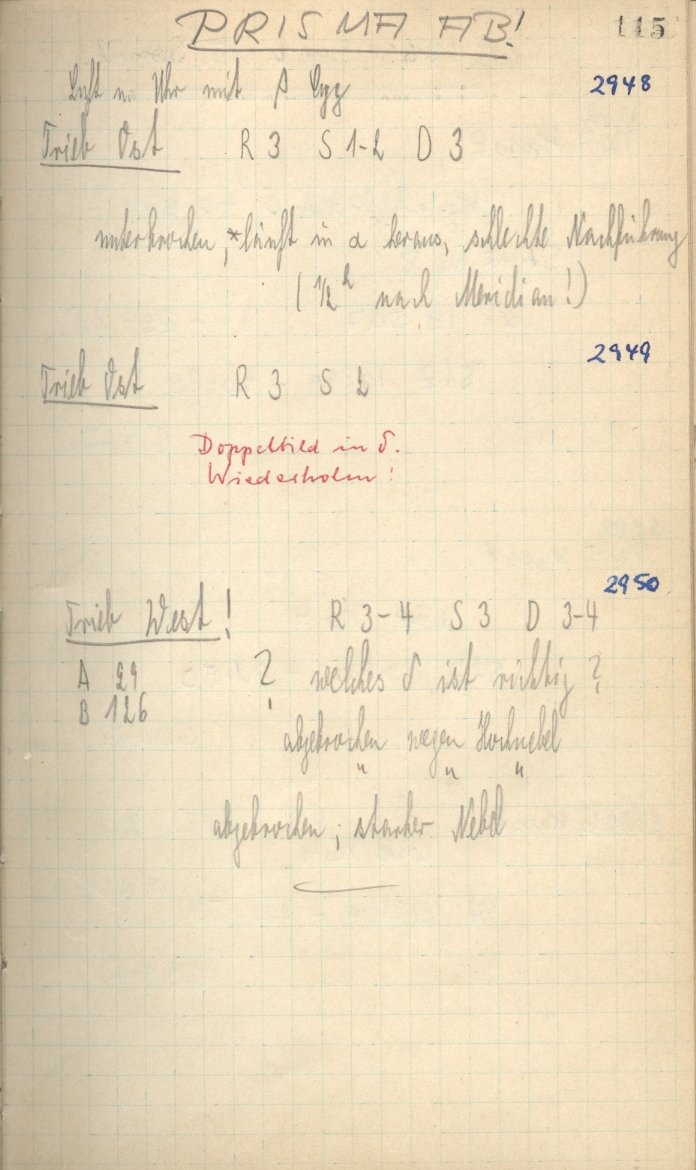 PRISMA AB!
115
u. Uhr mit β Cyg
2948
Trieb Ost R 3 S 1-2 D 3
unterbrochen, * läuft in α heraus, schlechte Nachführung
(½ h nach Meridian!)
2949
Trieb Ost R 3 S 2
Doppelbild in δ.
Wiederholen!
2950
Trieb West! R 3-4 S 3 D 3-4
A 29 ? welches δ ist richtig?
B 126
abgebrochen wegen Hochnebel
" " "
abgebrochen; starker Nebel